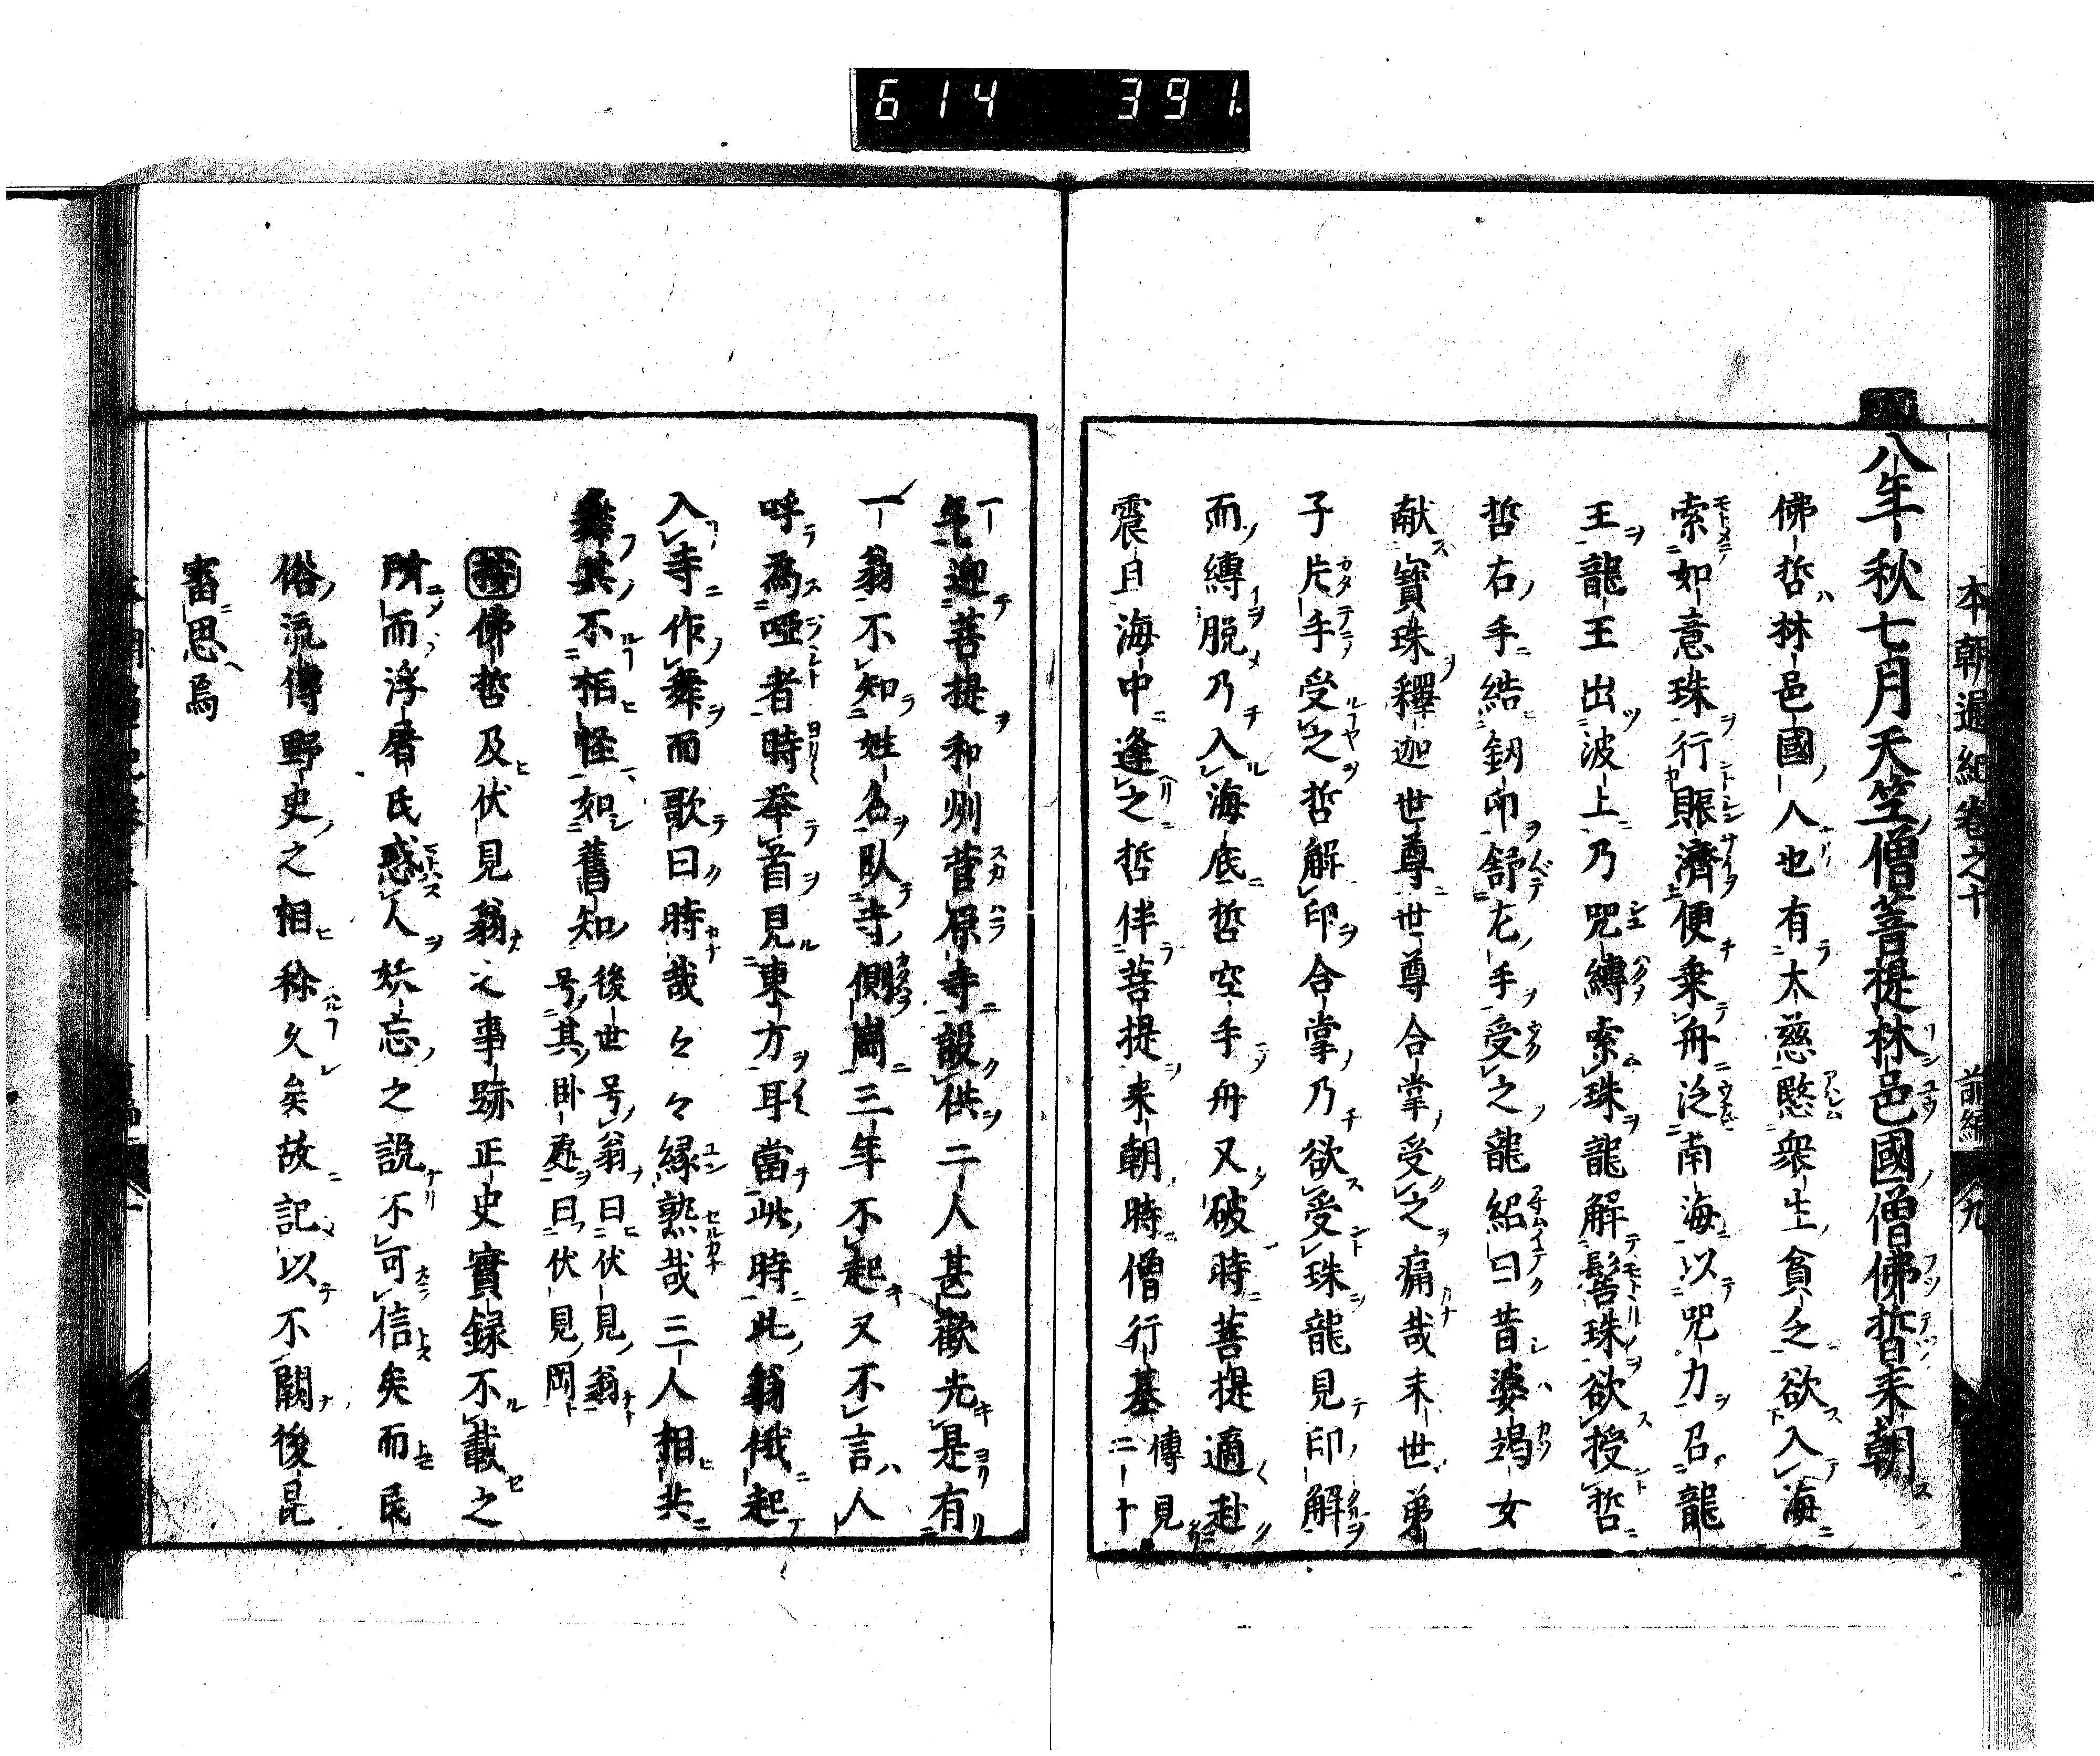 614 391
本朝通紀卷之十 前編 八九
八年秋七月天竺僧菩提林邑國僧佛哲来朝
佛哲林邑國人也有大慈愍衆生貧乏欲入海
索如意珠行賑濟便乗舟泛南海以咒力召龍
王龍王出波上乃咒縛索珠龍解髻珠欲授哲
哲右手結釼印舒左手受之龍紹曰昔婆竭女
献寳珠釋迦世尊世尊合掌受之痛哉末世弟
子片手受之哲解印合掌乃欲受珠龍見印解
而縛脱乃入海底哲空手舟又破時菩提適赴
震旦海中逢之哲伴菩提来朝時僧行基傳見二十
年迎菩提和州菅原寺設供二人甚歡先是有
一翁不知姓名臥寺側崗三年不起又不言人
呼為啞者時率首見東方耳當此時此翁俄起
入寺作舞而歌曰時哉々々縁熟哉三人相共
舞其不相怪如舊知後世号翁曰伏見翁号其卧處曰伏見岡
按佛哲及伏見翁之事跡正史實録不載之
所而浮屠氏惑人妖忘之説不可信矣而民
俗流傳野史之相称久矣故記以不闕後昆
審思焉